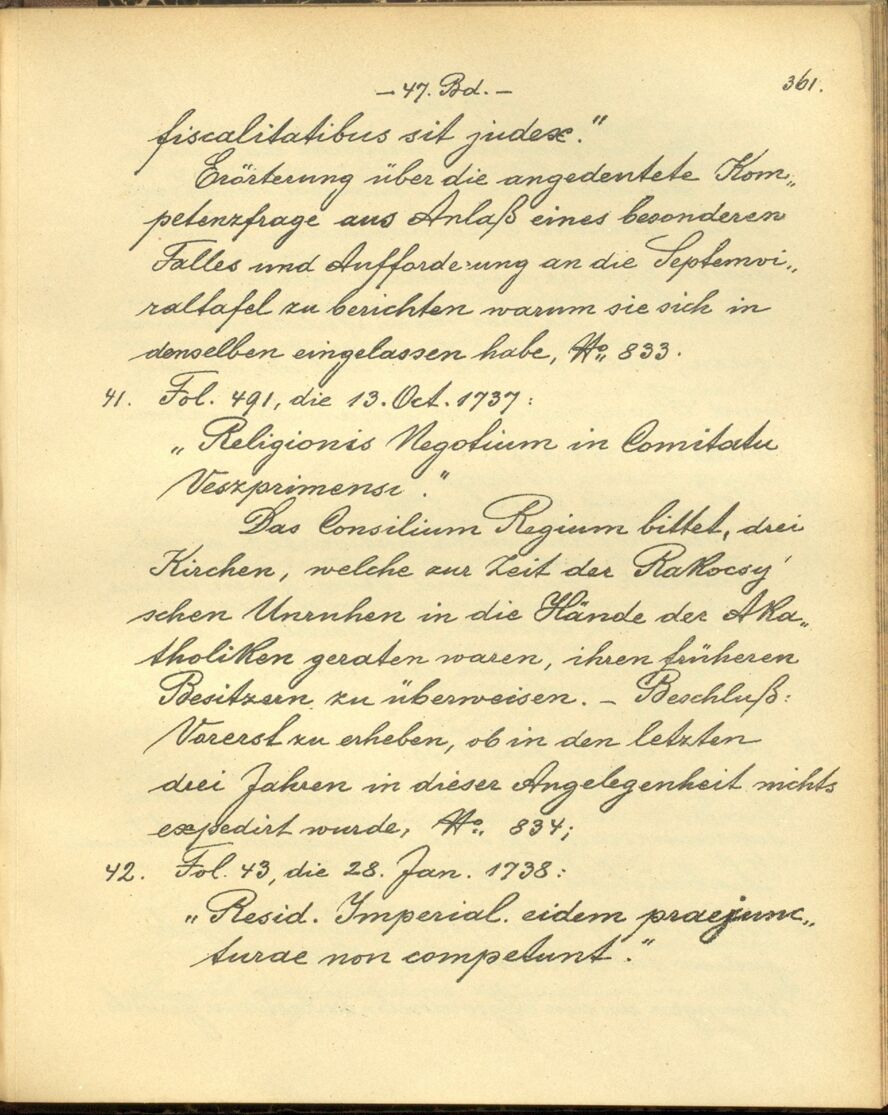 361.
— 47. Bd. —
fiscalitatibus sit judex."
Erörterung über die angedeutete Kom„
petenzfrage aus Anlaß eines besonderen
Falles und Aufforderung an die Septemvi„
raltafel zu berichten warum sie sich in
denselben eingelassen habe, No. 833.
41. Fol. 491, die 13. Oct. 1737:
„Religionis Negotium in Comitatu
Veszprimensi."
Das Consilium Regium bittet, drei
Kirchen, welche zur Zeit der Rakocsy'
schen Unruhen in die Hände der Aka„
tholiken geraten waren, ihren früheren
Besitzern zu überweisen. — Beschluß:
Vorerst zu erheben, ob in den letzten
drei Jahren in dieser Angelegenheit nichts
expedirt wurde, No. 834;
42. Fol. 43, die 28. Jan. 1738:
„Resid. Imperial. eidem praejunc„
turae non competunt."